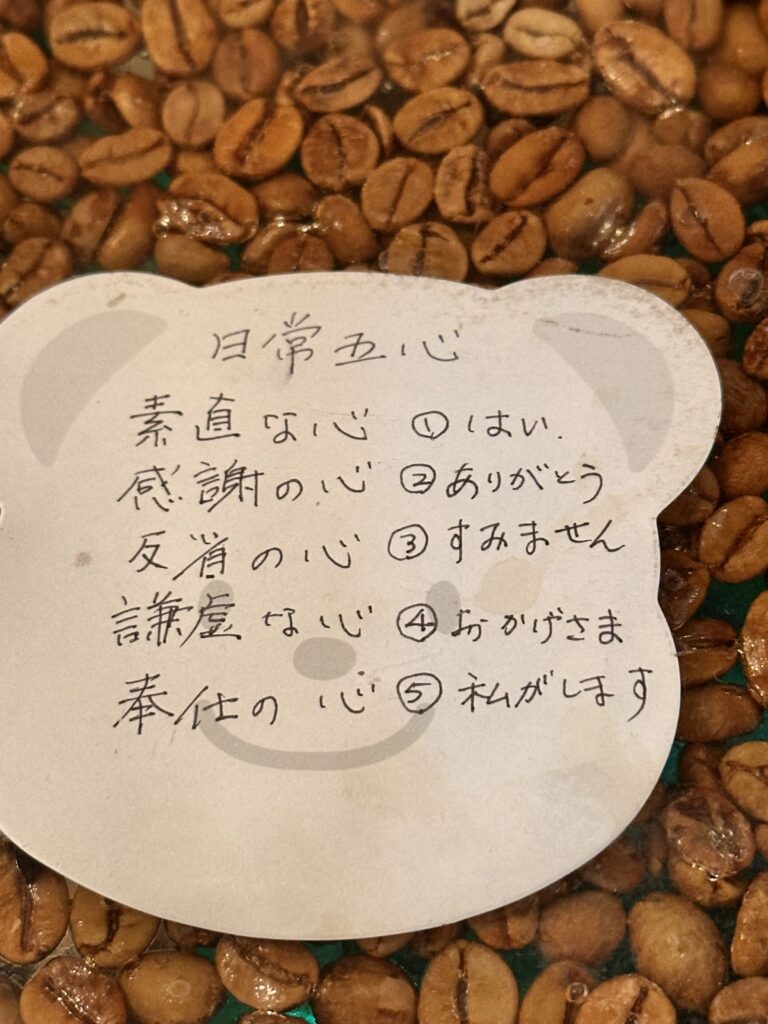 日常五心
素直な心 ①はい.
感謝の心 ②ありがとう
反省の心 ③すみません
謙虚な心 ④おかげさま
奉仕の心 ⑤私がします